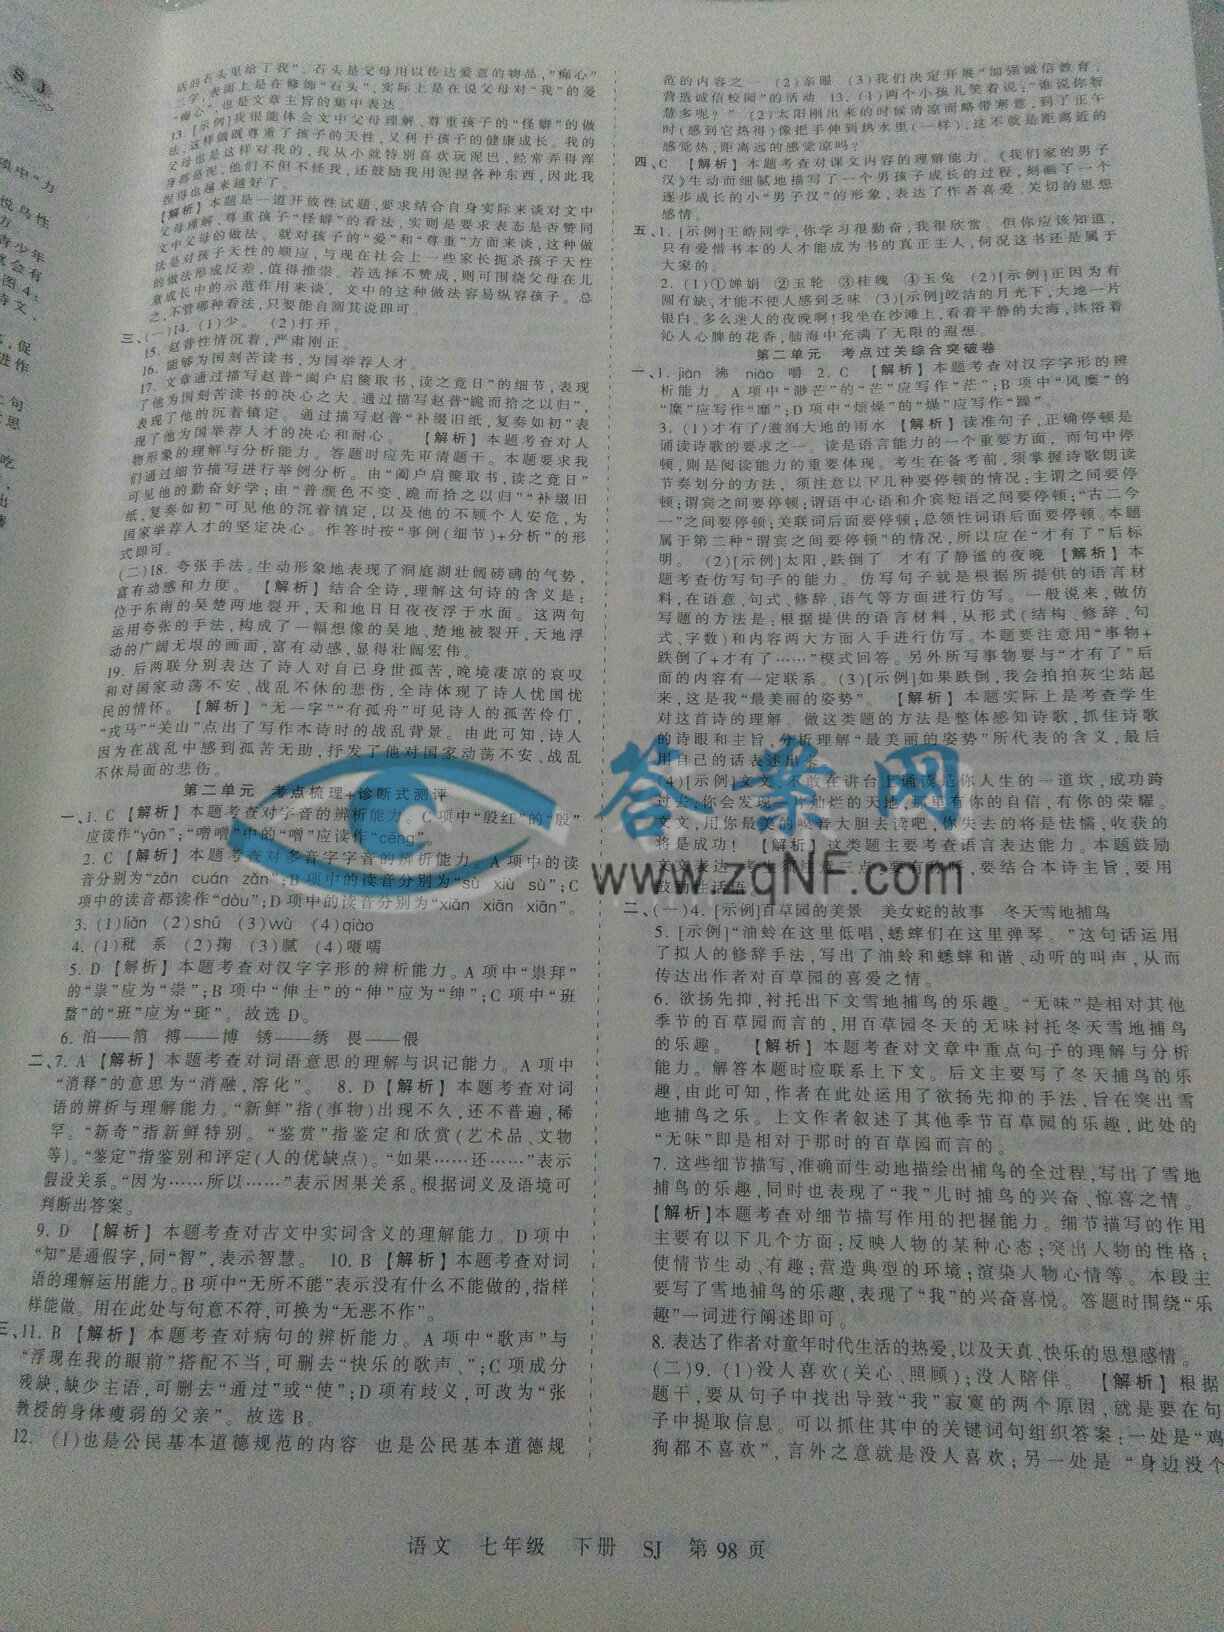 SJ
话的石头里给了我”。石头是父母用以传达爱意的物品，“痴心”
二字，表面上是在修饰“石头”，实际上是在说父母对“我”的爱
“痴心”，也是文章主旨的集中表达。
13. [示例]我很能体会文中父母理解、尊重孩子的“怪癖”的做
法，这样做既尊重了孩子的天性，又利于孩子的健康成长。我的
父母也是这样对我的，我从小就特别喜欢玩泥巴，经常弄得浑
身都是泥，他们不但不怪我，还鼓励我用泥捏各种东西，因此我
捏得也越来越好了。
【解析】本题是一道开放性试题，要求结合自身实际来谈对文中
父母理解、尊重孩子“怪癖”的看法，实则是要求表态是否赞同
文中父母的做法。就对孩子的“爱”和“尊重”方面来谈，这种做
法是对孩子天性的顺应，与现在社会上一些家长扼杀孩子天性
的做法形成反差，值得推崇。若选择不赞成，则可围绕父母在儿
童成长中的示范作用来谈，文中的这种做法容易纵容孩子。总
之，不管哪种看法，只要能自圆其说即可。
三、(一)14. (1)少。 (2)打开。
15. 赵普性情沉着，严肃刚正。
16. 能够为国刻苦读书，为国举荐人才。
17. 文章通过描写赵普“阖户启箧取书，读之竟日”的细节，表现
了他为国刻苦读书的决心之大。通过描写赵普“跪而拾之以归”，
表现了他的沉着镇定。通过描写赵普“补缀旧纸，复奏如初”表
现了他为国举荐人才的决心和耐心。 【解析】本题考查对人
物形象的理解与分析能力。答题时应先审清题干。本题要求我
们通过细节描写进行举例分析。由“阖户启箧取书，读之竟日”
可见他的勤奋好学；由“普颜色不变，跪而拾之以归”“补缀旧
纸，复奏如初”可见他的沉着镇定，以及他的不顾个人安危，为
国家举荐人才的坚定决心。作答时按“事例(细节)+分析”的形
式即可。
(二)18. 夸张手法。生动形象地表现了洞庭湖壮阔磅礴的气势，
富有动感和力度。 【解析】 结合全诗，理解这句诗的含义是：
位于东南的吴楚两地裂开，天和地日日夜夜浮于水面。这两句
运用夸张的手法，构成了一幅想像的吴地、楚地被裂开，天地浮
动的广阔无垠的画面，富有动感，显得壮阔宏伟。
19. 后两联分别表达了诗人对自己身世孤苦，晚境凄凉的哀叹
和对国家动荡不安、战乱不休的悲伤，全诗体现了诗人忧国忧
民的情怀。 【解析】“无一字”“有孤舟”可见诗人的孤苦伶仃，
“戎马”“关山”点出了写作本诗时的战乱背景。由此可知，诗人
因为在战乱中感到孤苦无助，抒发了他对国家动荡不安、战乱
不休局面的悲伤。
第二单元 考点梳理+诊断式测评
一、1. C 【解析】本题考查对字音的辨析能力。C项中“殷红”的“殷”
应读作“yān”；“噌噌”中的“噌”应读作“cēng”。
2. C【解析】本题考查对多音字字音的辨析能力。A项中的读
音分别为“zǎn cuán zǎn”；B项中的读音分别为“sù xiù sù”；C
项中的读音都读作“dòu”；D项中的读音分别为“xián xiān xiān”。
3. (1)liàn (2)shū (3)wù (4)qiào
4. (1)秕 系 (2)掬 (3)腻 (4)嗫嚅
5. D【解析】本题考查对汉字字形的辨析能力。A项中“祟拜”
的“祟”应为“崇”；B项中“伸士”的“伸”应为“绅”；C项中“班
蝥”的“班”应为“斑”。故选D。
6. 泊——箔 搏——博 锈——绣 畏——偎
二、7. A 【解析】本题考查对词语意思的理解与识记能力。A项中
“消释”的意思为“消融，溶化”。 8. D【解析】本题考查对词
语的辨析与理解能力。“新鲜”指(事物)出现不久，还不普遍，稀
罕。“新奇”指新鲜特别。“鉴赏”指鉴定和欣赏(艺术品、文物
等)。“鉴定”指鉴别和评定(人的优缺点)。“如果……还……”表示
假设关系。“因为……所以……”表示因果关系。根据词义及语境可
判断出答案。
9. D 【解析】本题考查对古文中实词含义的理解能力。D项中
“知”是通假字，同“智”，表示智慧。 10. B 【解析】本题考查对词
语的理解运用能力。B项中“无所不能”表示没有什么不能做的，指样
样能做。用在此处与句意不符，可换为“无恶不作”
三、11. B 【解析】本题考查对病句的辨析能力。A项中“歌声”与
“浮现在我的眼前”搭配不当，可删去“快乐的歌声、”；C项成分
残缺，缺少主语，可删去“通过”或“使”；D项有歧义，可改为“张
教授的身体瘦弱的父亲”。故选B。
12. (1)也是公民基本道德规范的内容 也是公民基本道德规
范的内容之一 (2)亲眼 (3)我们决定开展“加强诚信教育，
营造诚信校园”的活动 13. (1)两个小孩儿笑着说：“谁说你智
慧多呢？” (2)太阳刚出来的时候清凉而略带寒意，到了正午
时(感到它热得)像把手伸到热水里(一样)，这不就是距离近的
感觉热，距离远的感觉凉吗？
四、C 【解析】本题考查对课文内容的理解能力。《我们家的男子
汉》生动而细腻地描写了一个男孩子成长的过程，刻画了一个
逐步成长的小“男子汉”的形象，表达了作者喜爱、关切的思想
感情。
五、1. [示例]王皓同学，你学习很勤奋，我很欣赏。但你应该知道，
只有爱惜书本的人才能成为书的真正主人，何况这书还是属于
大家的。
2. (1)①婵娟 ②玉轮 ③桂魄 ④玉兔 (2)[示例]正因为有
圆有缺，才能不使人感到乏味 (3)[示例]皎洁的月光下，大地一片
银白。多么迷人的夜晚啊！我坐在沙滩上，看着平静的大海，沐浴着
沁人心脾的花香，脑海中充满了无限的遐想。
第二单元 考点过关综合突破卷
一、1. jiàn 沸 niào 嚼 2. C 【解析】本题考查对汉字字形的辨
析能力。A项中“渺芒”的“芒”应写作“茫”；B项中“风糜”的
“糜”应写作“靡”；D项中“烦燥”的“燥”应写作“躁”。
3. (1)才有了/滋润大地的雨水 【解析】读准句子，正确停顿是
诵读诗歌的要求之一。读是语言能力的一个重要方面，而句中停
顿，则是阅读能力的重要体现。考生在备考前，须掌握诗歌朗读
节奏划分的方法，须注意以下几种要停顿的情况：主谓之间要停
顿；谓宾之间要停顿；谓语中心语和介宾短语之间要停顿；“古二今
一”之间要停顿；关联词后面要停顿；总领性词语后面要停顿。本题
属于第二种“谓宾之间要停顿”的情况，所以应在“才有了”后标
明。 (2)[示例]太阳，跌倒了 才有了静谧的夜晚 【解析】本
题考查仿写句子的能力。仿写句子就是根据所提供的语言材
料，在语意、句式、修辞、语气等方面进行仿写。一般说来，做仿
写题的方法是：根据提供的语言材料，从形式(结构、修辞、句
式、字数)和内容两大方面入手进行仿写。本题要注意用“事物+
跌倒了+才有了……”模式回答。另外所写事物要与“才有了”后
面的内容有一定联系。(3)[示例]如果跌倒，我会拍拍灰尘站起
来，这是我“最美丽的姿势”。 【解析】本题实际上是考查学生
对这首诗的理解。做这类题的方法是整体感知诗歌，抓住诗歌
的诗眼和主旨，分析理解“最美丽的姿势”所代表的含义，最后
用自己的话表述出来。
(4)[示例]文文，不敢在讲台上诵读是你人生的一道坎，成功跨
过去，你会发现灿烂的天地，那里有你的自信，有你的荣耀。
文文，用你最美的嗓音大胆去读吧，你失去的将是怯懦，收获的
将是成功！ 【解析】这类题主要考查语言表达能力。本题鼓励
文文表达，三点：要有称呼，要结合本诗主旨，要用
二、(一)4. [示例]百草园的美景 美女蛇的故事 冬天雪地捕鸟
5. [示例]“油蛉在这里低唱，蟋蟀们在这里弹琴。”这句话运用
了拟人的修辞手法，写出了油蛉和蟋蟀和谐、动听的叫声，从而
传达出作者对百草园的喜爱之情。
6. 欲扬先抑，衬托出下文雪地捕鸟的乐趣。“无味”是相对其他
季节的百草园而言的，用百草园冬天的无味衬托冬天雪地捕鸟
的乐趣。 【解析】本题考查对文章中重点句子的理解与分析
能力。解答本题时应联系上下文。后文主要写了冬天捕鸟的乐
趣，由此可知，作者在此处运用了欲扬先抑的手法，旨在突出雪
地捕鸟之乐。上文作者叙述了其他季节百草园的乐趣，此处的
“无味”即是相对于那时的百草园而言的。
7. 这些细节描写，准确而生动地描绘出捕鸟的全过程，写出了雪地
捕鸟的乐趣，同时也表现了“我”儿时捕鸟的兴奋、惊喜之情。
【解析】本题考查对细节描写作用的把握能力。细节描写的作用
主要有以下几个方面：反映人物的某种心态；突出人物的性格；
使情节生动、有趣；营造典型的环境；渲染人物心情等。本段主
要写了雪地捕鸟的乐趣，表现了“我”的兴奋喜悦。答题时围绕“乐
趣”一词进行阐述即可。
8. 表达了作者对童年时代生活的热爱，以及天真、快乐的思想感情。
(二)9. (1)没人喜欢(关心、照顾)；没人陪伴。 【解析】根据
题干，要从句子中找出导致“我”寂寞的两个原因，就是要在句
子中提取信息。可以抓住其中的关键词句组织答案：一处是“鸡
狗都不喜欢”，言外之意就是没人喜欢；另一处是“身边没个
答案网
www.zqNF.com
语文 七年级 下册 SJ 第98页